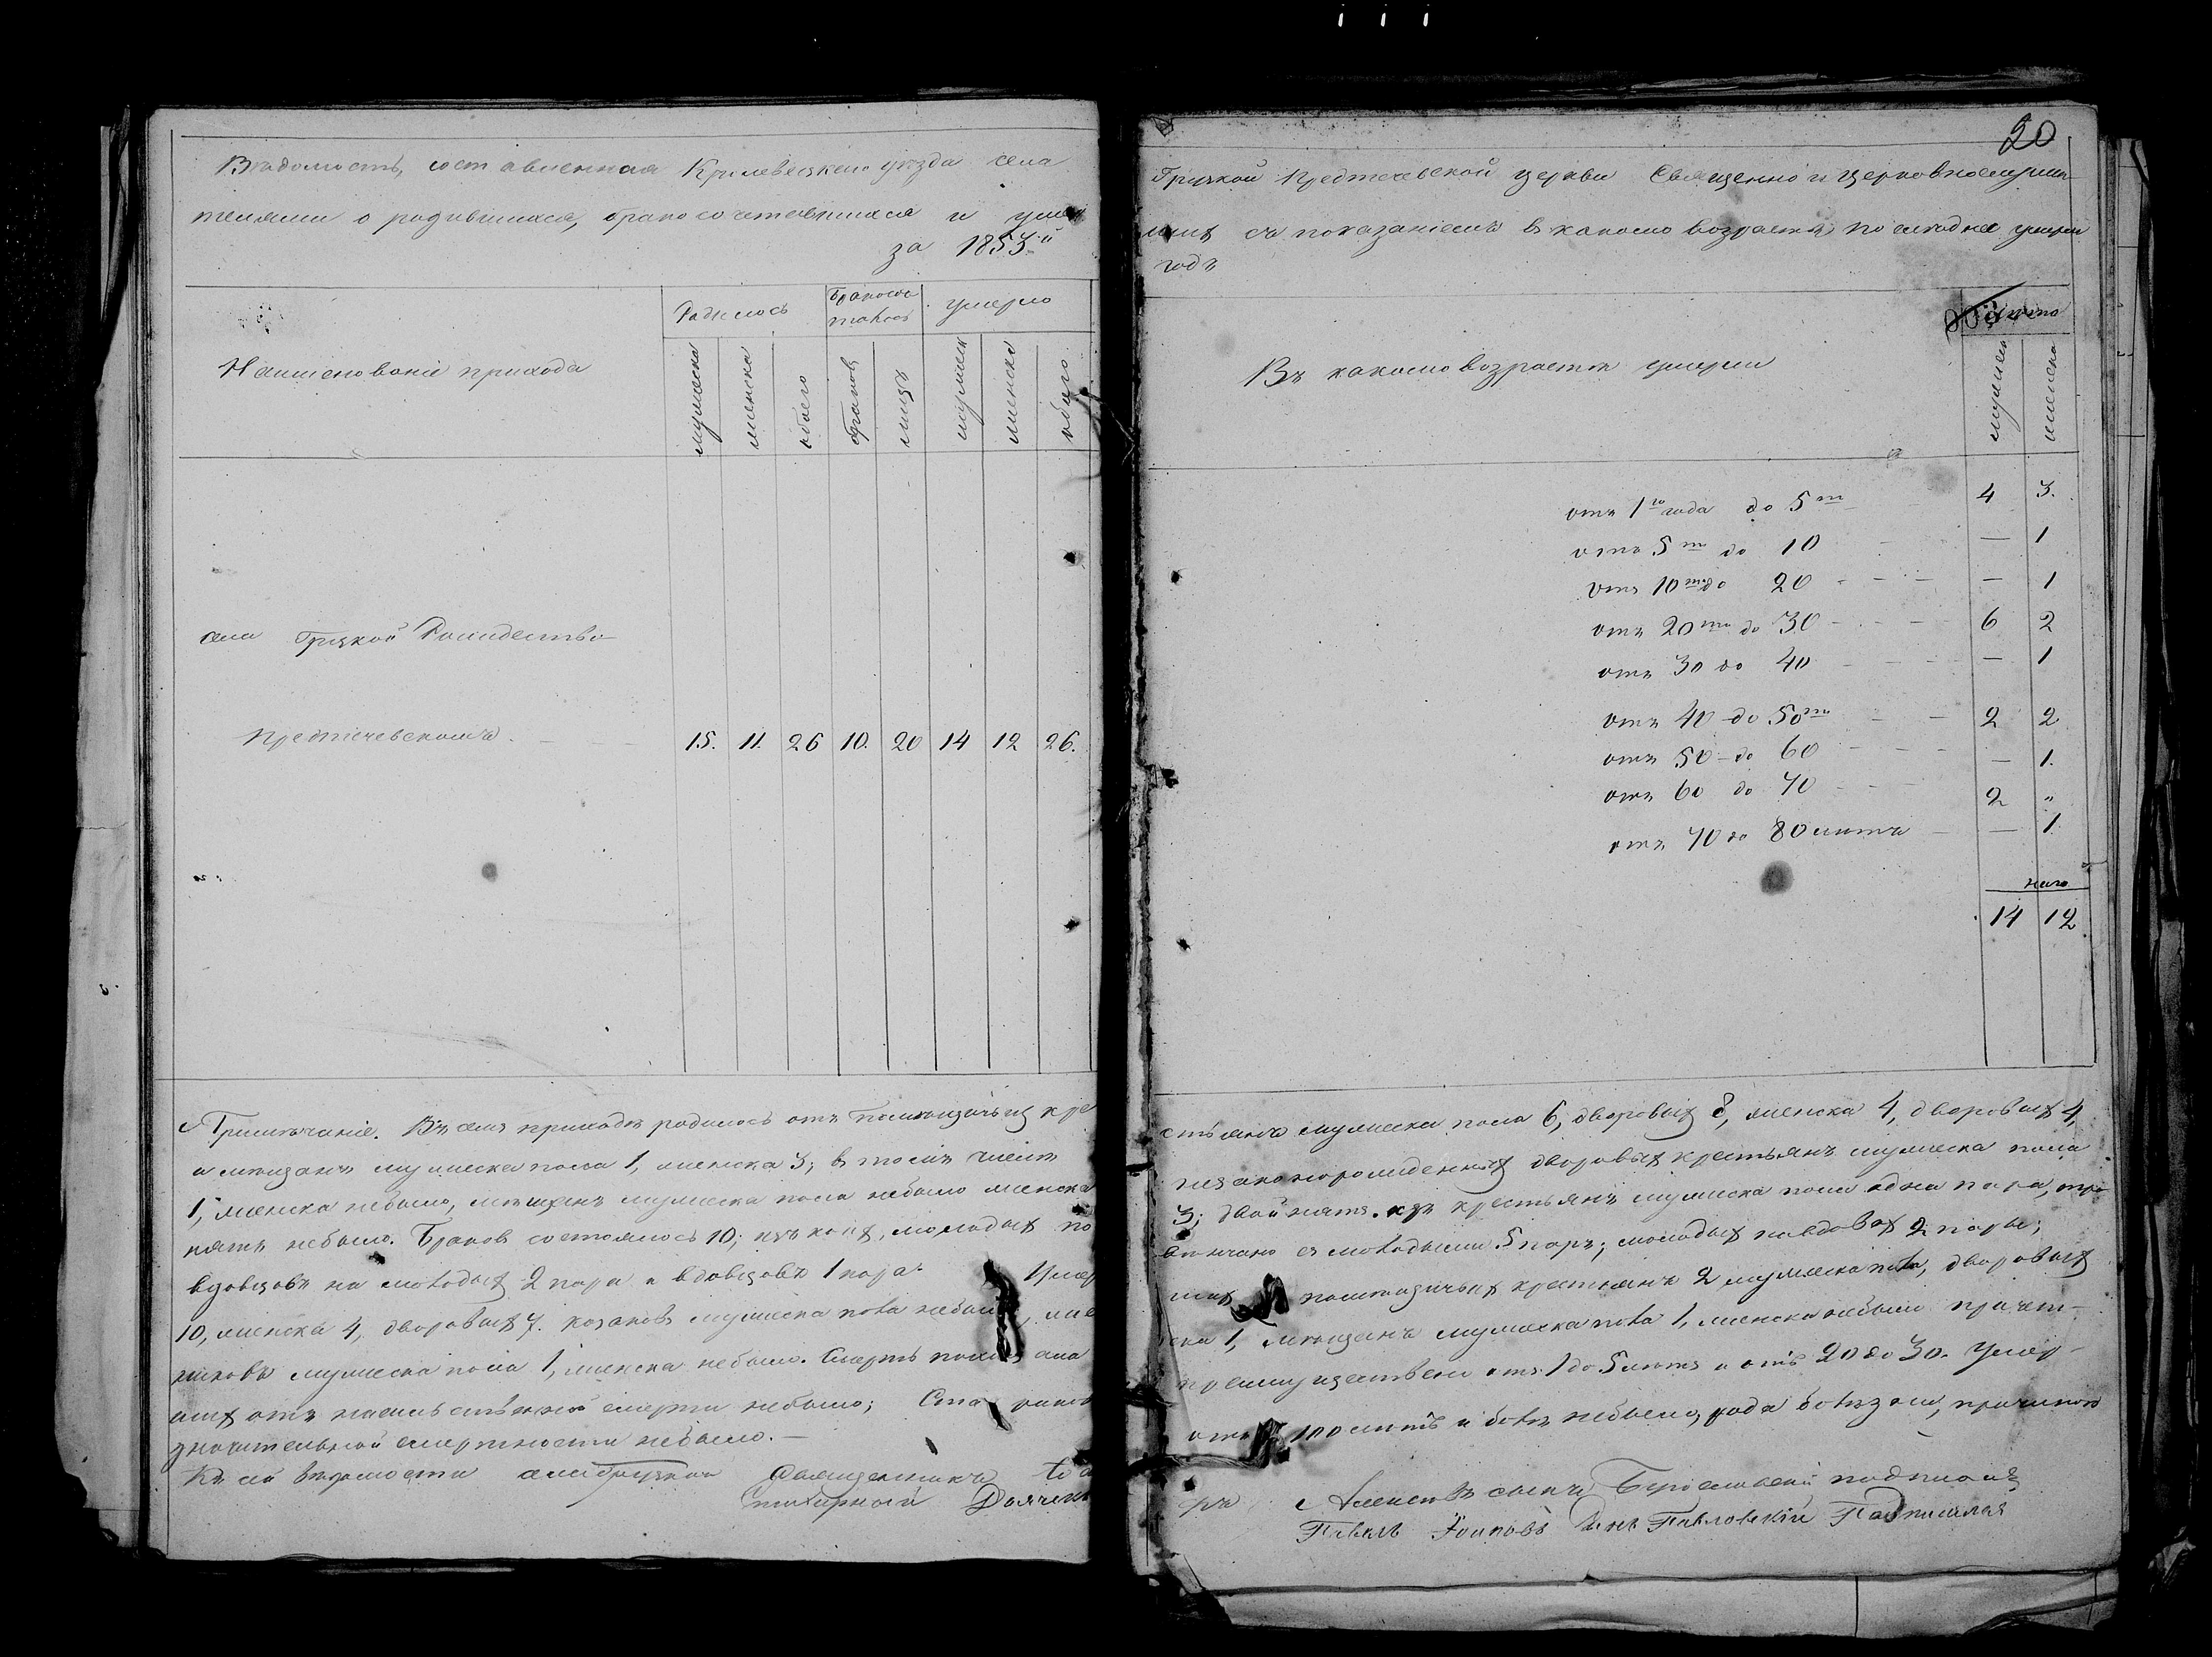 20
Вѣдомость, составленная Кролевецкаго уѣзда села
Грузкой Предтечевской церкви Священно и церковнослужи-
телями о родившихся, бракосочетавшихся и умер
шихъ съ показаніемъ въ какомъ возрастѣ по сколько умерли
за 1853-й
годъ
Наименованіе прихода
Родилось
Бракосоч
талось
умерло
мужеска
женска
обоего
браковъ
лицъ
мужеск
женска
обоего
Въ какомъ возрастѣ умерли
мужеск
женска
села Грузкой Рождество
Предтечевскомъ 15. 11. 26 10. 20 14 12 26.
отъ 1го года до 5ти 4 3.
отъ 5ти до 10 — 1
отъ 10ти до 20 — 1
отъ 20ти до 30 6 2
отъ 30 до 40 — 1
отъ 40 до 50ти 2 2
отъ 50 до 60 — 1.
отъ 60 до 70 2 „
отъ 70 до 80 лѣтъ — 1
14 12
Примѣчаніе. Въ семъ приходѣ родилось отъ помѣщичьихъ кре
стьянъ мужеска пола 6, дворовыхъ 8, женска 4, дворовыхъ 4,
и мѣщанъ мужеска пола 1, женска 3; въ томъ числѣ
незаконорожденныхъ дворовыхъ крестьянъ мужеска пола
1, женска небыло, мѣщанъ мужеска пола небыло женска
3; двойнятъ изъ крестьянъ мужеска пола одна пара, трой
нятъ небыло. Браковъ состоялось 10; изъ коихъ, молодыхъ по
вѣнчано съ молодыми 5 паръ; молодыхъ на вдовахъ 2 пары;
вдовцовъ на молодыхъ 2 пары и вдовцовъ 1 пара. Умер
шихъ помѣщичьихъ крестьянъ 2 мужеска пола, дворовыхъ
10, женска 4, дворовыхъ 7. козаковъ мужеска пола небыло, жен
ска 1, мѣщанъ мужеска пола 1, женска небыло причет-
никовъ мужеска пола 1, женска небыло. Смерть
преимущественно отъ 1 до 5 лѣтъ и отъ 20 до 30. Умер-
шихъ отъ насильственной смерти небыло;
отъ 100 лѣтъ и болѣе небыло, рода болѣзни, причиною
значительной смертности небыло.—
Къ сей вѣдомости села Грузкой Священникъ
Алексѣевъ сынъ подписалъ
Дьячекъ
Павелъ сынъ Павловскій Подписался